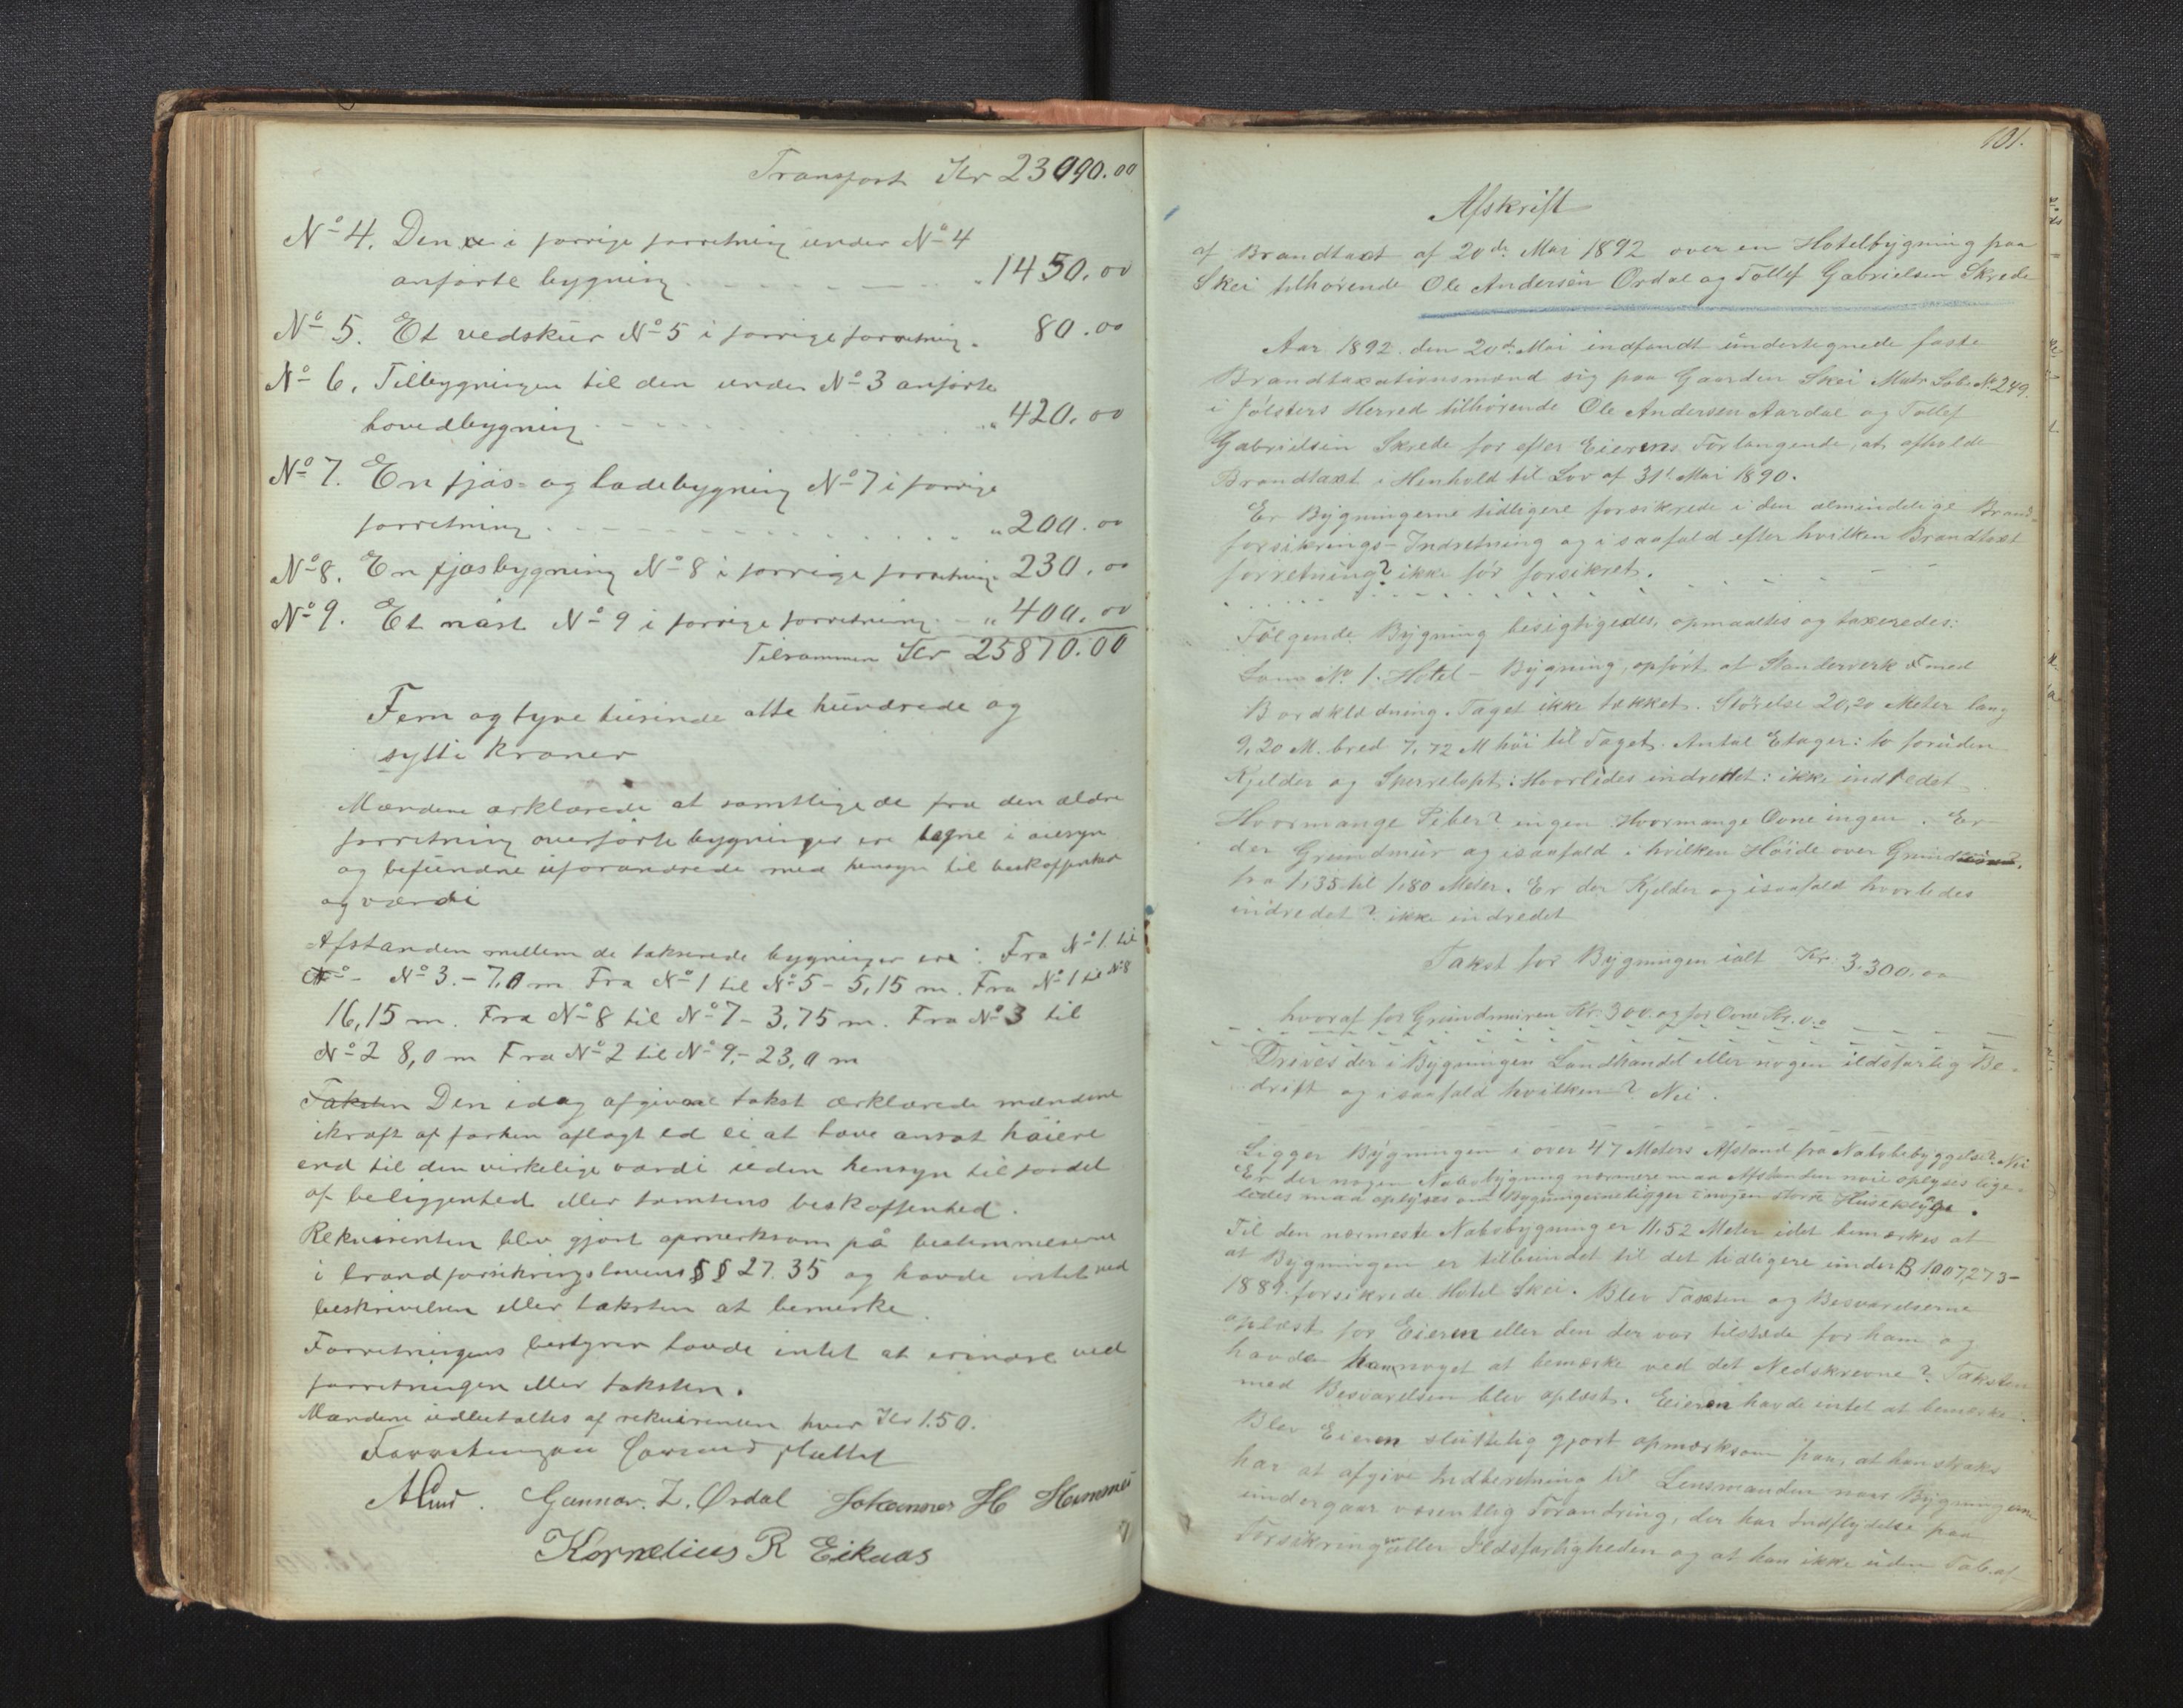 Transport Kr 23090.00
No 4. Den i forrige forretning under No 4
anførte bygning " 1450.00
No 5. Et vedskur No 5 i forrige forretning " 80.00
No 6. Tilbygningen til den under No 3 anførte
hovedbygning " 420.00
No 7. En fjøs- og ladebygning No 7 i forrige
forretning " 200.00
No 8. En fjøsbygning No 8 i forrige forretning 230.00
No 9. Et nøst No 9 i forrige forretning " 400.00
Tilsammen Kr 25870.00
Fem og tyve tusinde otte hundrede og
sytti kroner
Mændene erklærede at samtlige de fra den ældre
forretning overførte bygninger ere tagne i øiesyn
og befundne uforandrede med hensyn til beskaffenhed
og værdi
Afstanden mellem de takserede bygninger ere: Fra No 1 til
No 3. - 7,0 m. Fra No 1 til No 5 - 5,15 m. Fra No 1 til No 8
16,15 m. Fra No 8 til No 7 - 3,75 m. Fra No 3 til
No 2 8,0 m Fra No 2 til No 9. - 23,0 m
Taksten Den idag afgivne takst erklærede mændene
ikraft af forhen aflagt ed ei at have ansat høiere
end til den virkelige værdi uden hensyn til fordel
af beliggenhed eller tomtens beskaffenhed.
Rekvirenten blev gjort opmerksom på bestemmelserne
i brandforsikringslovens §§ 27. 35 og havde intet ved
beskrivelsen eller taksten at bemerke.
Forretningens bestyrer havde intet at erindre ved
forretningen eller taksten.
Mændene udbetaltes af rekvirenten hver Kr 1.50.
Forretningen sluttet
Gunnar. L. Ørdal Johannes H
Kornelius R Eikaas
101.
Afskrift
af Brandtaxt af 20de Mai 1892 over en Hotelbygning paa
Skei tilhørende Ole Andersen Ørdal og Tollef Gabrielsen Skrede
Aar 1892 den 20de Mai indfandt undertegnede faste
Brandtaxationsmænd sig paa Gaarden Skei Matr. Løb. No 249.
i Jølsters Herred tilhørende Ole Andersen Aardal og Tollef
Gabrielsen Skrede for efter Eierens Forlangende, at afholde
Brandtaxt i Henhold til Lov af 31t Mai 1890.
Er Bygningerne tidligere forsikrede i den almindelige Brand-
forsikrings-Indretning og i saafald efter hvilken Brandtaxt
forretning? ikke før forsikret.
Følgende Bygning besigtigedes, opmaaltes og taxeredes:
Som No 1. Hotel-Bygning, opført af Standerverk med
Bordklædning. Taget ikke tækket. Størelse 20,20 Meter lang
9,20 M. bred 7,72 M høi til Taget. Antal Etager: to foruden
Kjelder og Sperreloft. Hvorledes indrettet: ikke indredet
Hvormange Piber? ingen Hvormange Ovne ingen. Er
der Grundmur og isaafald i hvilken Høide over Grunden?
fra 1,35 til 1,80 Meter. Er der Kjelder og isaafald hvorledes
indredet? ikke indredet
Takst for Bygningen ialt Kr. 3.300.00
hvoraf for Grundmuren Kr. 300. og for Ovne Kr. 0.0
Drives der i Bygningen Landhandel eller nogen ildsfarlig Be-
drift og i saafald hvilken? Nei.
Ligger Bygningen i over 47 Meters Afstand fra Nabobebyggelse? Nei
Er der nogen Nabobygning nærmere maa Afstanden nøie oplyses lige-
ledes maa oplyses om Bygningerne ligger i nogen større Huseklynge.
Til den nærmeste Nabobygning er 11,52 Meter idet bemærkes at
at Bygningen er tilbundet til det tidligere under B 1007,273-
1889 forsikrede Hotel Skei. Blev Taxten og Besvarelserne
oplæst for Eieren eller den der var tilstede for ham og
havde han noget at bemærke ved det Nedskrevne? Taksten
med Besvarelsen blev oplæst. Eieren havde intet at bemærke.
Blev Eieren sluttelig gjort opmærksom paa, at han straks
har at afgive Indberetning til Lensmanden naar Bygningerne
undergaar væsentlig Forandring, der har Indflydelse paa
Forsikringen eller Ildsfarligheden og at han ikke uden Tab af